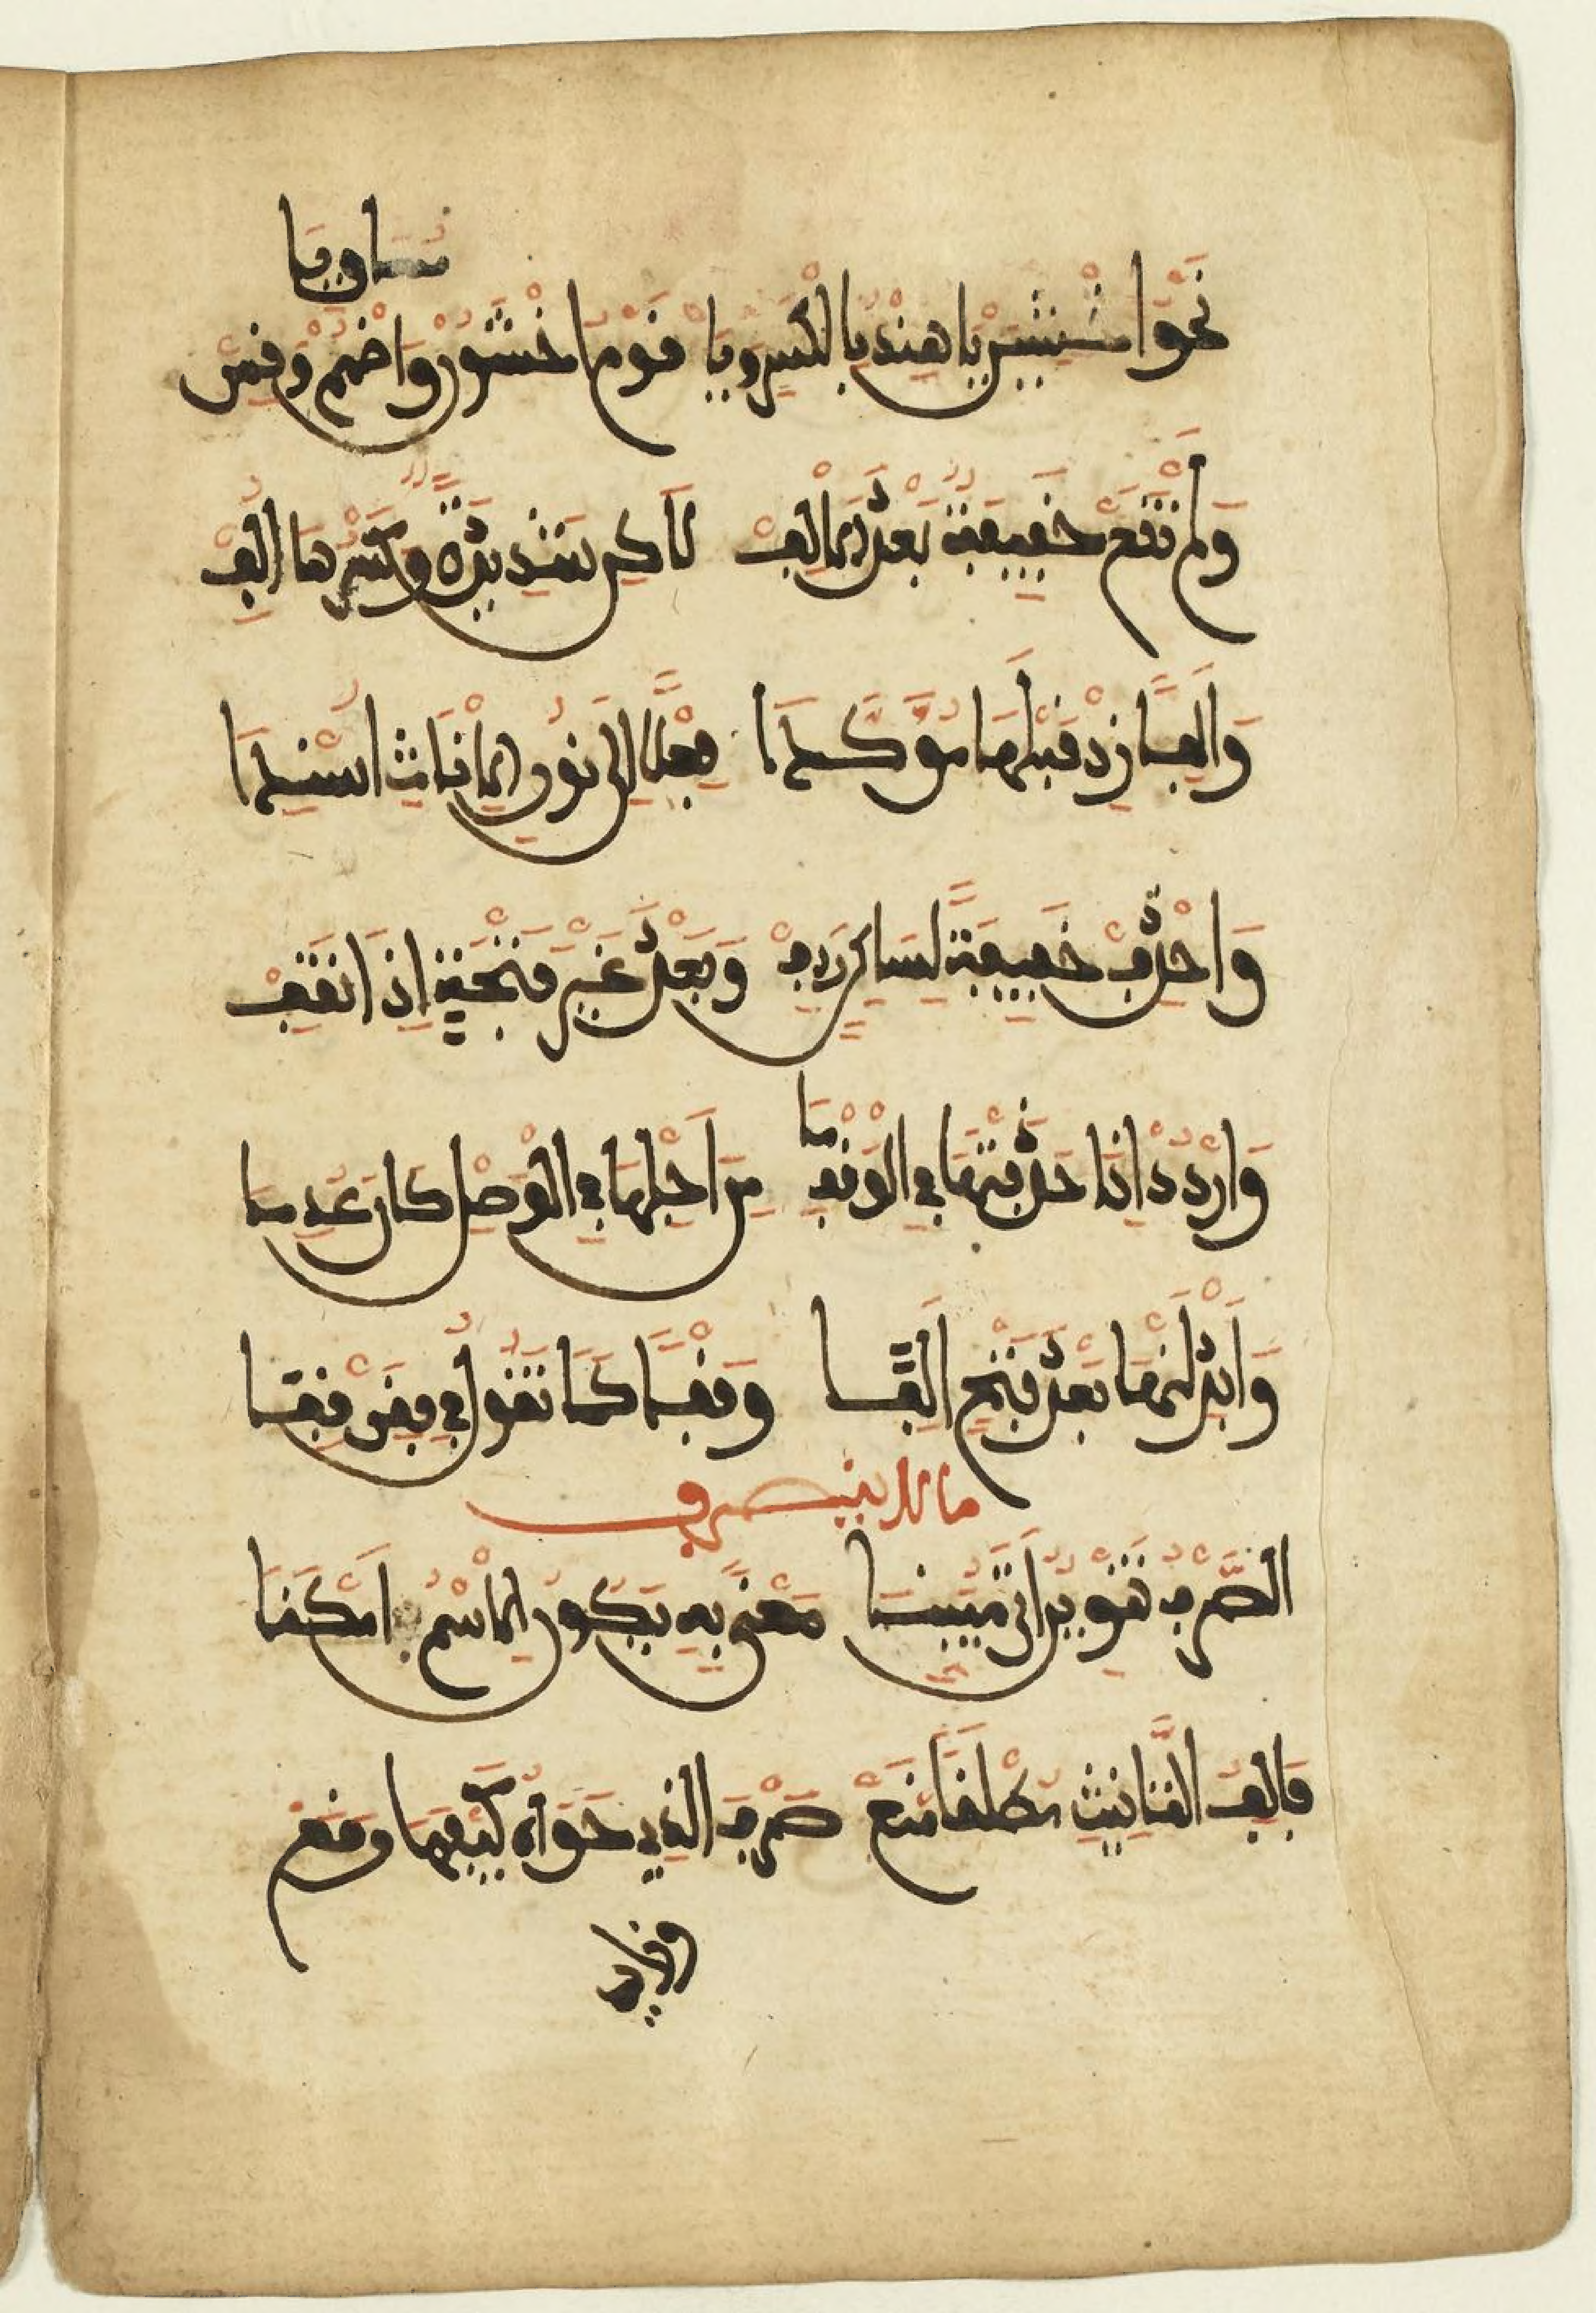 تساويا
نحو اخشين يا هند بالكسر ويا قوم اخشون واضمم وقس
ولم تقع خفيفة بعد الالف لاكن شديدة وكسرها الف
والفا زد قبلها موكدا فعلا الى نون الاناث اسندا
واحذف خفيفة لساكن ردف وبعد غير فتحة اذا تقف
واردد اذا حذفتها في الوقف ما من اجلها في الوصل كان عدما
وابدلنها بعد فتح الفا وقفا كما تقول في قفن قفا
ما لا ينصرف
الصرف تنوين اتى مبينا معنى به يكون الاسم امكنا
فالف التانيث مطلقا منع صرف الذي حواه كيفما وقع
وزايدا